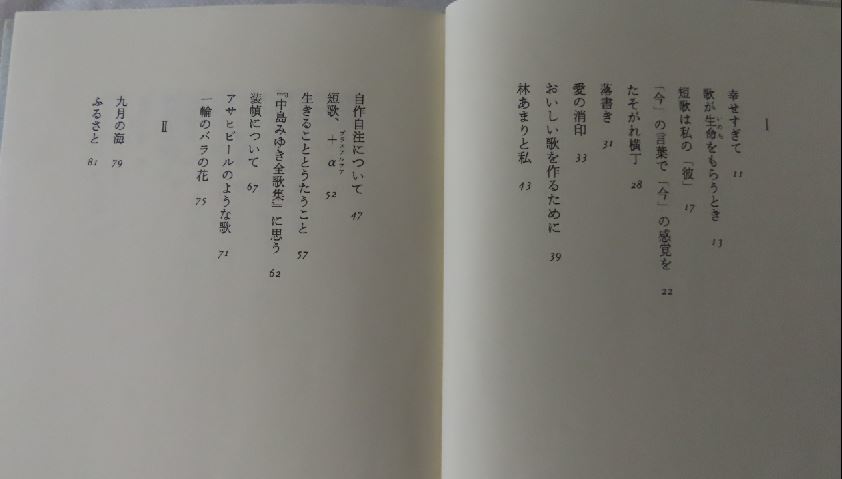 I
幸せすぎて 11
歌が生命をもらうとき 13
いのち
短歌は私の「彼」 17
「今」の言葉で「今」の感覚を 22
たそがれ横丁 28
落書き 31
愛の消印 33
おいしい歌を作るために 39
林あまりと私 43
自作自注について 47
短歌、+α 52
プラスアルファ
生きることとうたうこと 57
『中島みゆき全歌集』に思う 62
装幀について 67
アサヒビールのような歌 71
一輪のバラの花 75
II
九月の海 79
ふるさと 81